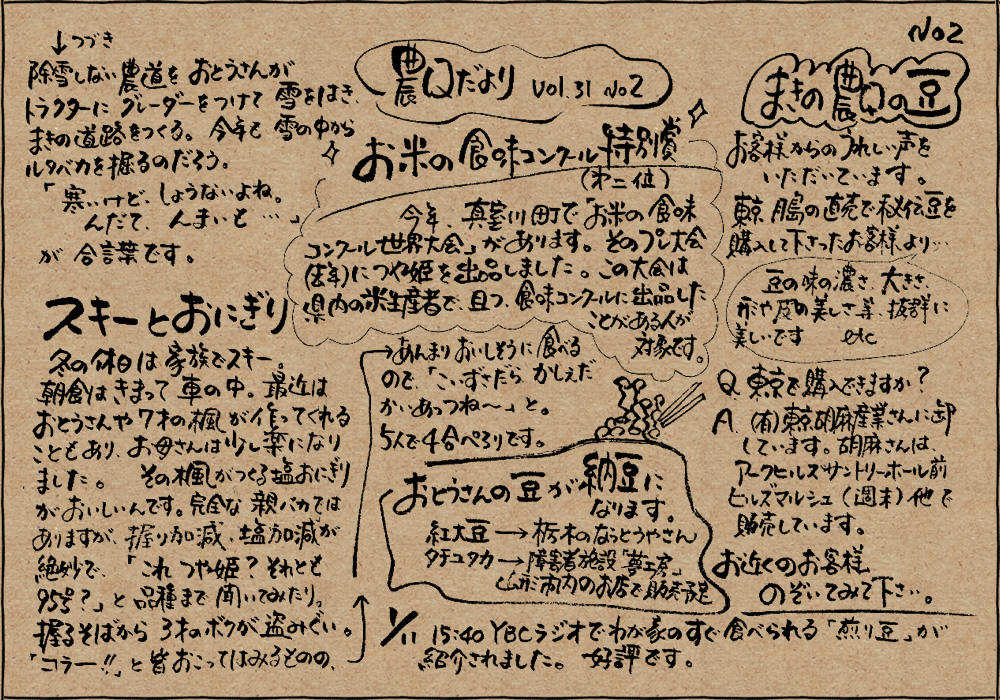 No2
↓つづき
除雪しない農道を おとうさんが
トラクターに グレーダーをつけて 雪をはき、
まきの道路をつくる。今年も 雪の中から
ルタバカを掘るのだろう。
「寒いけど、しょうないよね。
んだて、んまいもの…」
が 合言葉です。
スキーとおにぎり
冬の休日は 家族でスキー。
朝食はきまって 車の中。最近は
おとうさんや7才の楓が作ってくれる
こともあり、お母さんは少し楽になり
ました。 その楓がつくる塩おにぎり
がおいしいんです。完全な 親バカでは
ありますが、握り加減、塩加減が
絶妙で、「これ つや姫？それとも
95号？」と 品種まで 聞いてみたり。
握るそばから 3才のボクが 盗みぐい。
「コラー!!」と 皆おこってはみるものの、
農口だより Vol.31 No2
お米の食味コンクール 特別賞
(第二位)
今年、真室川町で「お米の食味
コンクール世界大会」があります。そのプレ大会
(去年)につや姫を出品しました。この大会は
県内の米生産者で、且つ、食味コンクールに出品した
ことがある人が
対象です。
→あんまりおいしそうに食べる
ので、「こいずさだら かしぇだ
かいあっつね〜」と。
5人で4合ぺろりです。
おとうさんの豆が納豆に
なります。
紅大豆→栃木のなっとうやさん
タチユタカ→障害者施設「夢工房」
山形市内のお店で販売予定
1/11 15:40 YBCラジオでわが家のすぐ食べられる「煎り豆」が
紹介されました。好評です。
まきの農口の豆
お客様からのうれしい声を
いただいています。
東京 月島の直売で秘伝豆を
購入して下さったお客様より…
豆の味の濃さ、大きさ、
形や皮の美しさ等、抜群に
美しいです etc
Q. 東京で購入できますか？
A. (有)東京胡麻産業さんに卸
しています。胡麻さんは、
アークヒルズサントリーホール前
ヒルズマルシェ(週末)他で
販売しています。
お近くのお客様
のぞいてみて下さい。